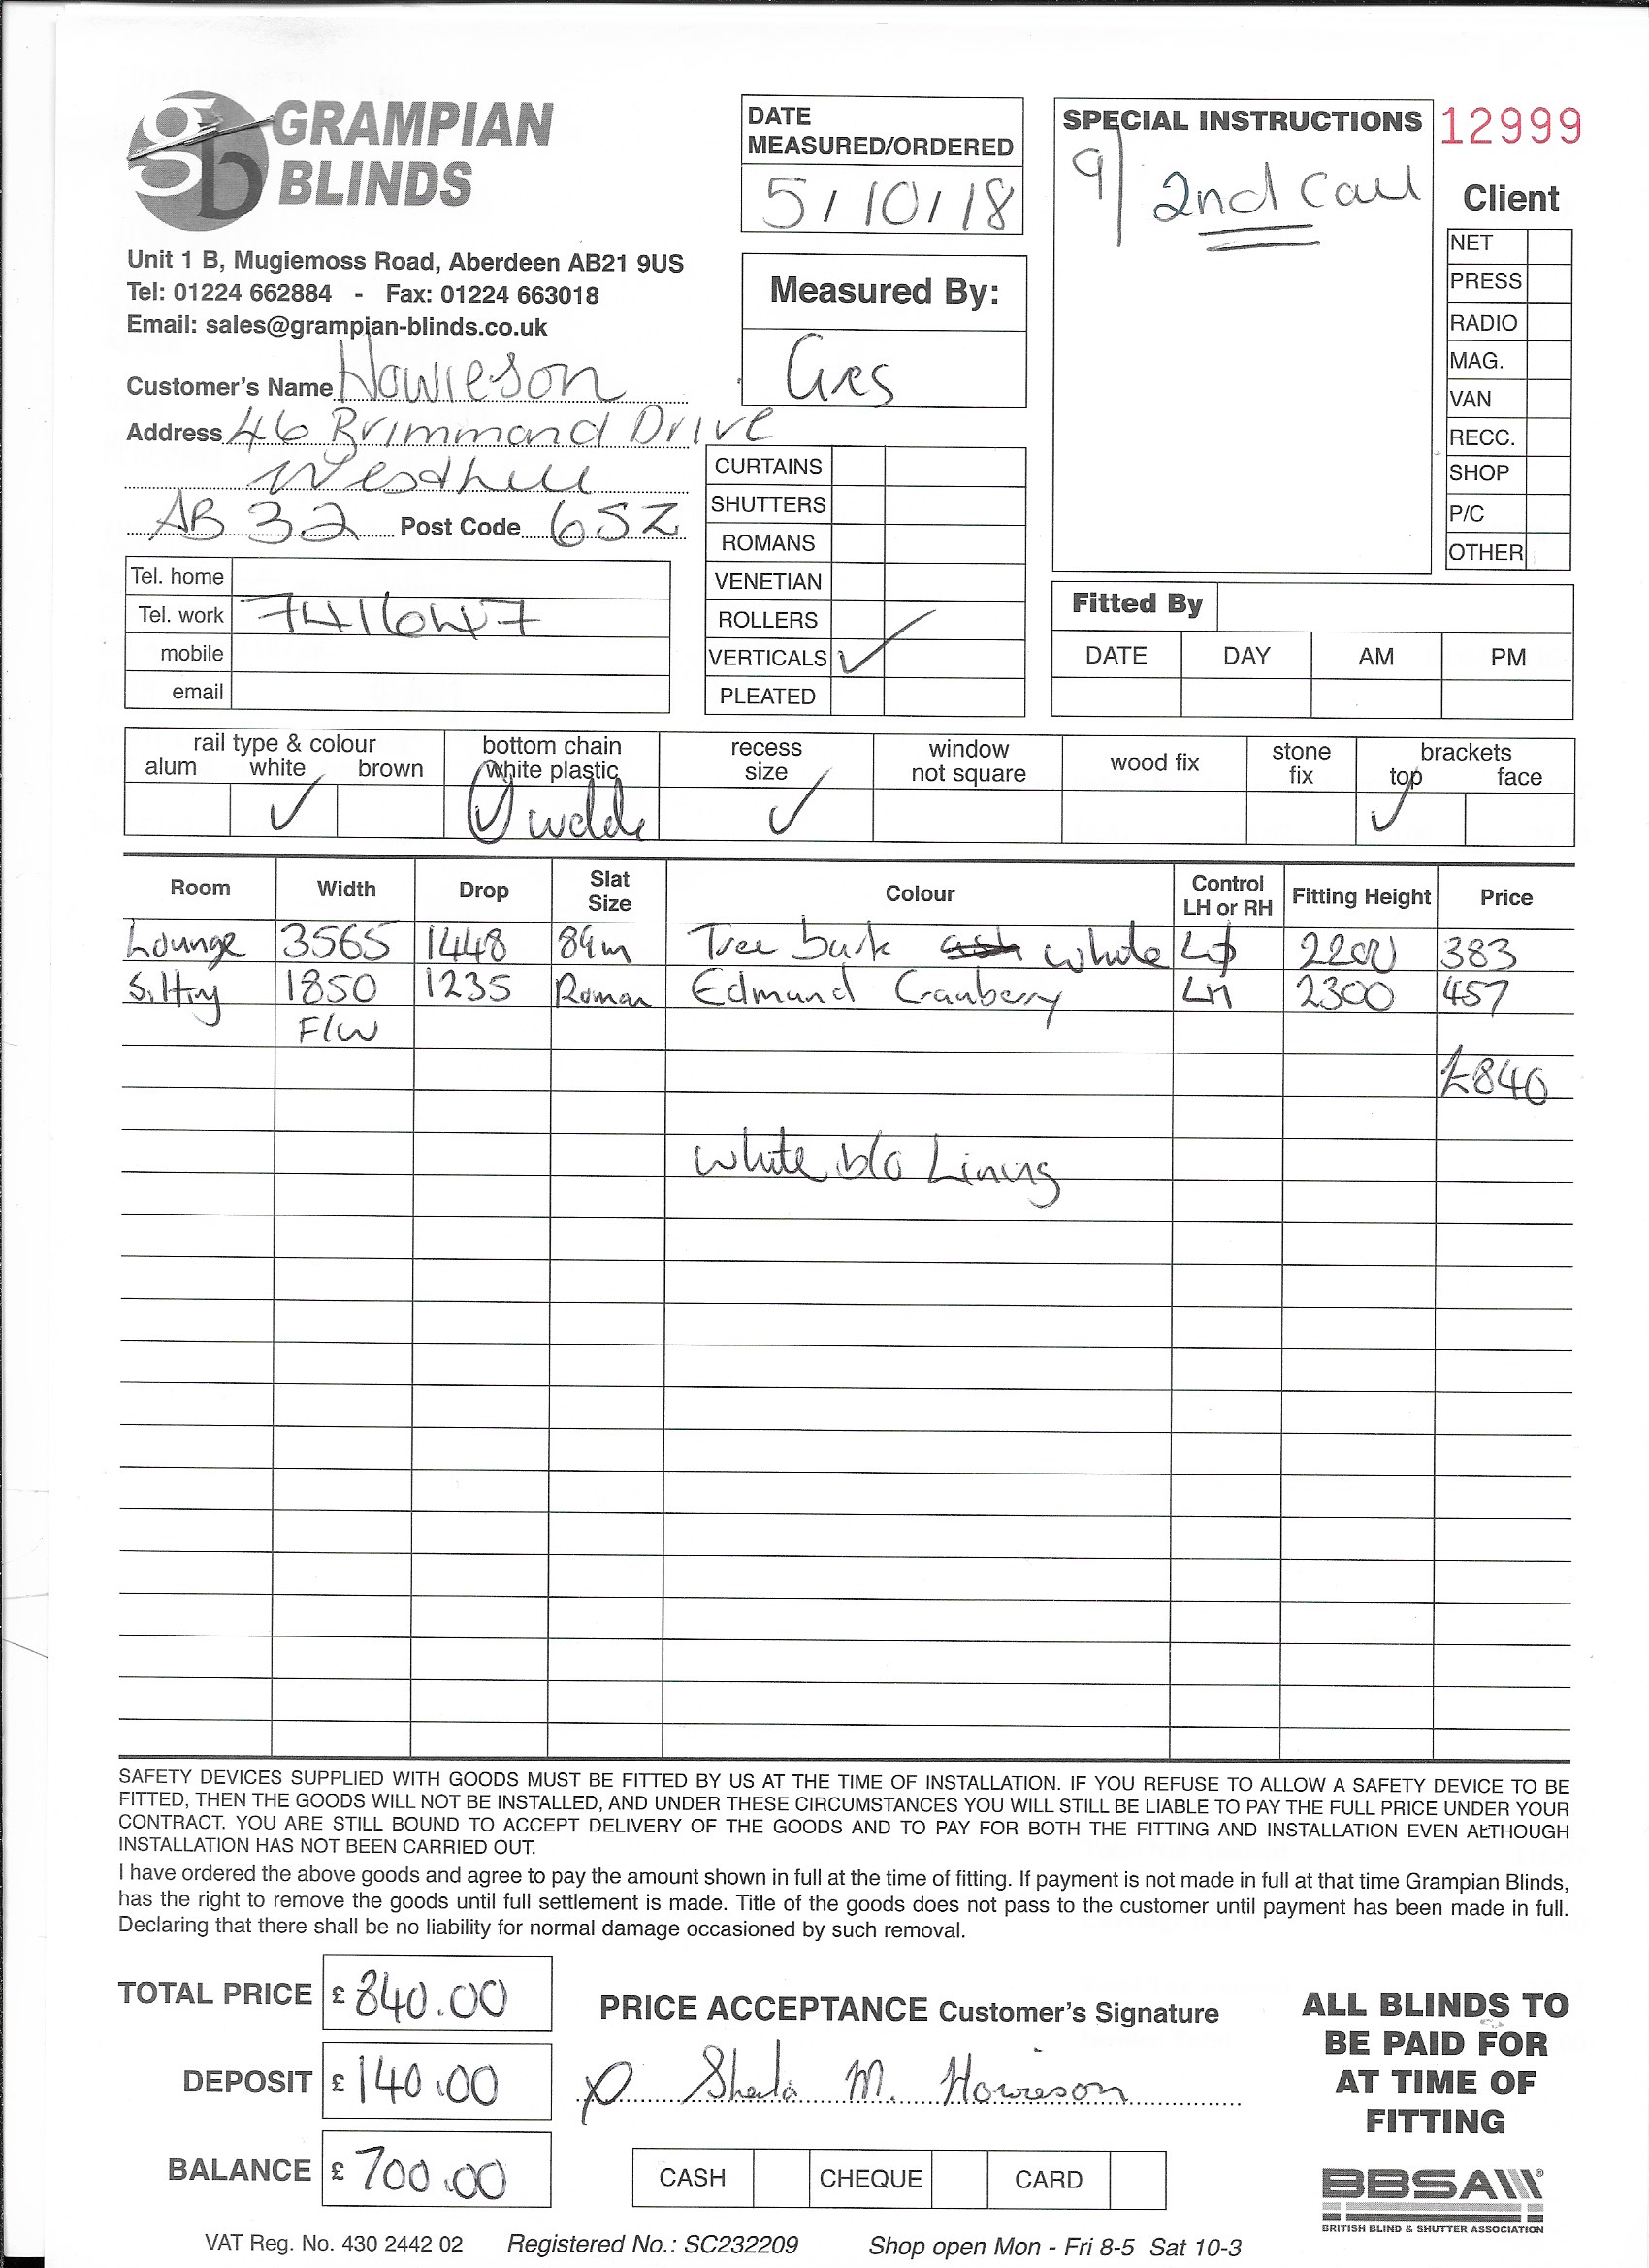 GRAMPIAN
BLINDS
Unit 1 B, Mugiemoss Road, Aberdeen AB21 9US
Tel: 01224 662884 - Fax: 01224 663018
Email: sales@grampian-blinds.co.uk
Customer's Name Howieson
Address 46 Brimmond Drive
Westhill
AB 32 Post Code 6SZ
Tel. home
Tel. work 741647
mobile
email
DATE
MEASURED/ORDERED
5/10/18
Measured By:
CURTAINS
SHUTTERS
ROMANS
VENETIAN
ROLLERS
VERTICALS ✓
PLEATED
SPECIAL INSTRUCTIONS
9/ 2nd Call
12999
Client
NET
PRESS
RADIO
MAG.
VAN
RECC.
SHOP
P/C
OTHER
Fitted By
DATE DAY AM PM
rail type & colour
alum white brown
✓
bottom chain
white plastic
✓
recess
size
✓
window
not square
wood fix
stone
fix
brackets
top face
✓
Room Width Drop Slat Size Colour Control LH or RH Fitting Height Price
Lounge 3565 1448 89m Tree bark white 2200 383
Sitting 1850 1235 Roman Edmund Cranberry LH 2300 457
F/W
£840
White b/o Lining
SAFETY DEVICES SUPPLIED WITH GOODS MUST BE FITTED BY US AT THE TIME OF INSTALLATION. IF YOU REFUSE TO ALLOW A SAFETY DEVICE TO BE
FITTED, THEN THE GOODS WILL NOT BE INSTALLED, AND UNDER THESE CIRCUMSTANCES YOU WILL STILL BE LIABLE TO PAY THE FULL PRICE UNDER YOUR
CONTRACT. YOU ARE STILL BOUND TO ACCEPT DELIVERY OF THE GOODS AND TO PAY FOR BOTH THE FITTING AND INSTALLATION EVEN ALTHOUGH
INSTALLATION HAS NOT BEEN CARRIED OUT.
I have ordered the above goods and agree to pay the amount shown in full at the time of fitting. If payment is not made in full at that time Grampian Blinds,
has the right to remove the goods until full settlement is made. Title of the goods does not pass to the customer until payment has been made in full.
Declaring that there shall be no liability for normal damage occasioned by such removal.
TOTAL PRICE £ 840.00
DEPOSIT £ 140.00
BALANCE £ 700.00
PRICE ACCEPTANCE Customer's Signature
Sheila M. Howieson
CASH CHEQUE CARD
ALL BLINDS TO
BE PAID FOR
AT TIME OF
FITTING
BBSA
BRITISH BLIND & SHUTTER ASSOCIATION
VAT Reg. No. 430 2442 02 Registered No.: SC232209 Shop open Mon - Fri 8-5 Sat 10-3